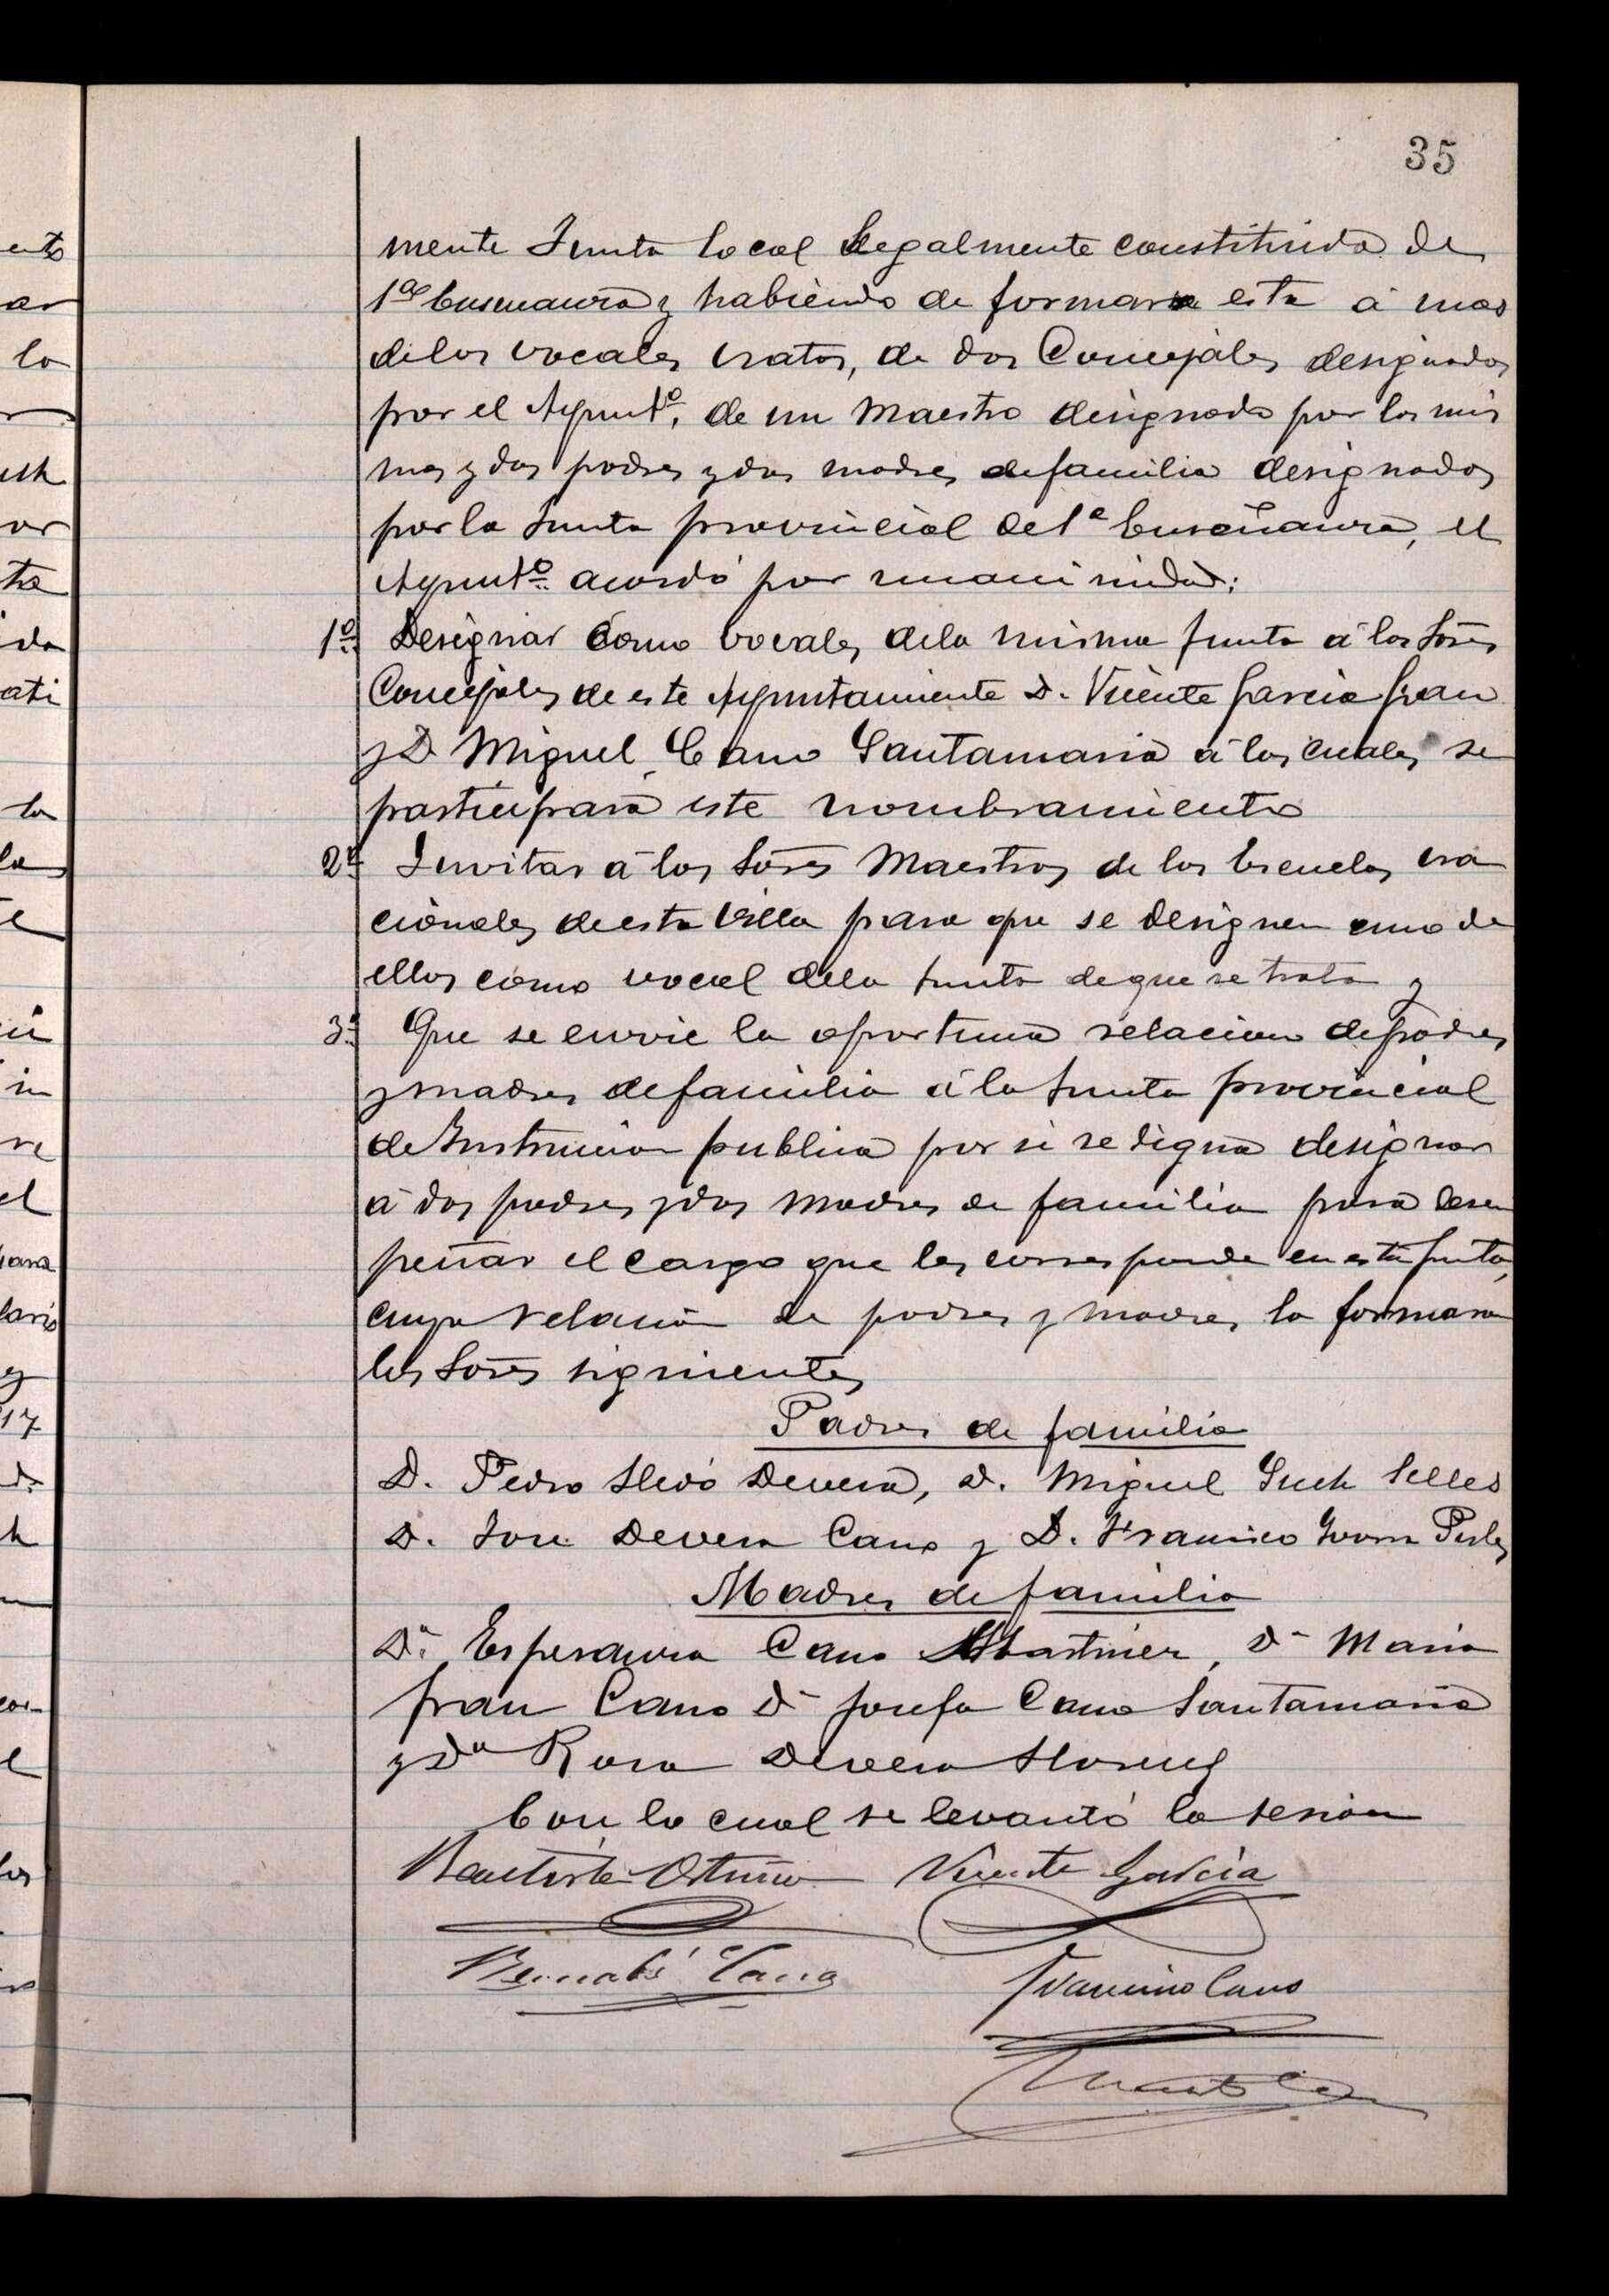 35
mente Junta local legalmente constituida de
1ª Enseñanza y habiendo de formar esta á mas
de los vocales natos, de dos Concejales designados
por el Ayuntº, de un Maestro designado por los mis
mos y dos padres y dos madres de familia designados
por la Junta provincial de 1ª Enseñanza, el
Ayuntº acordó por unanimidad:
1º Designar como vocales de la misma Junta á los Sores
Concejales de este Ayuntamiento D. Vicente Garcia Grau
y D Miguel Cano Santamaria á los cuales se
participará este nombramiento
2º Invitar á los Sores Maestros de las Escuelas na
cionales de esta Villa para que se designen uno de
ellos como vocal de la Junta de que se trata y
3º Que se envie la oportuna relacion de padres
y madres de familia á la Junta provincial
de Instrucion publica por si se digna designar
á dos padres y dos madres de familia para desem
peñar el cargo que les corresponde en esta Junta,
cuya relación de padres y madres la formaran
los Sores siguientes
Padres de familia
D. Pedro Lledó Devesa, D. Miguel Such Selles
D. Jose Devesa Cano y D. Francisco Ivorra Perles
Madres de familia
Dª Esperanza Cano Martinez, Dª Maria
Grau Cano Dª Josefa Cano Santamaria
y Dª Rosa Devesa Llorens
Con lo cual se levantó la sesion
Bautista Ortuño Vicente Garcia
Bernabé Cano
Francisco Cano